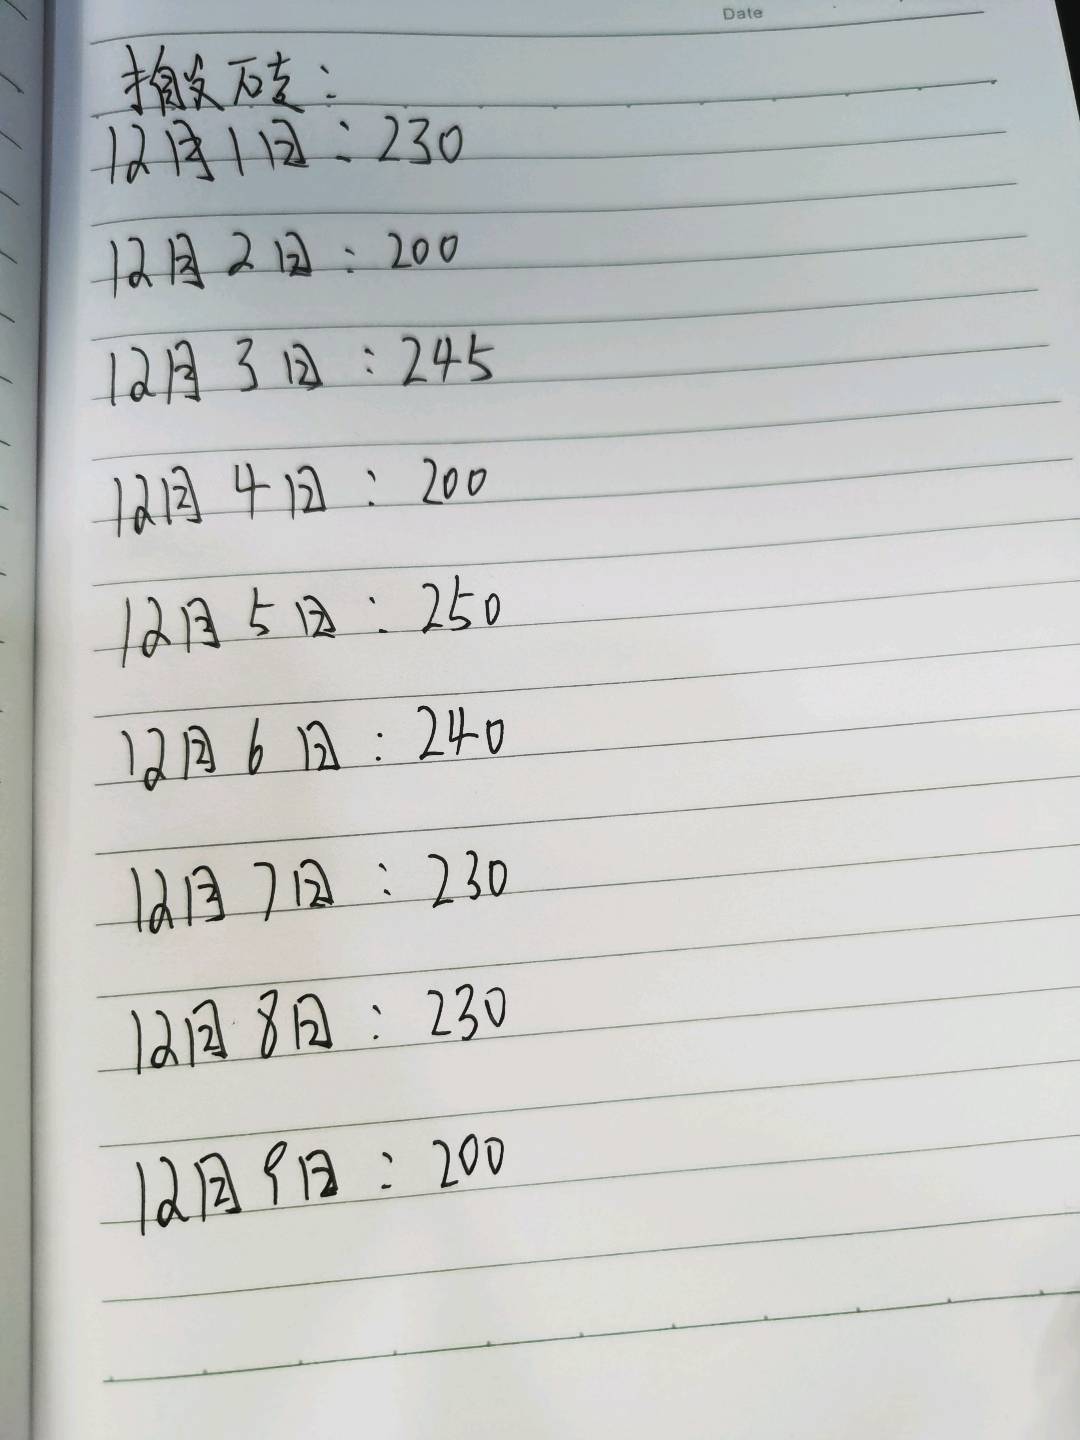 Date
搬砖：
12月1日：230
12月2日：200
12月3日：245
12月4日：200
12月5日：250
12月6日：240
12月7日：230
12月8日：230
12月9日：200